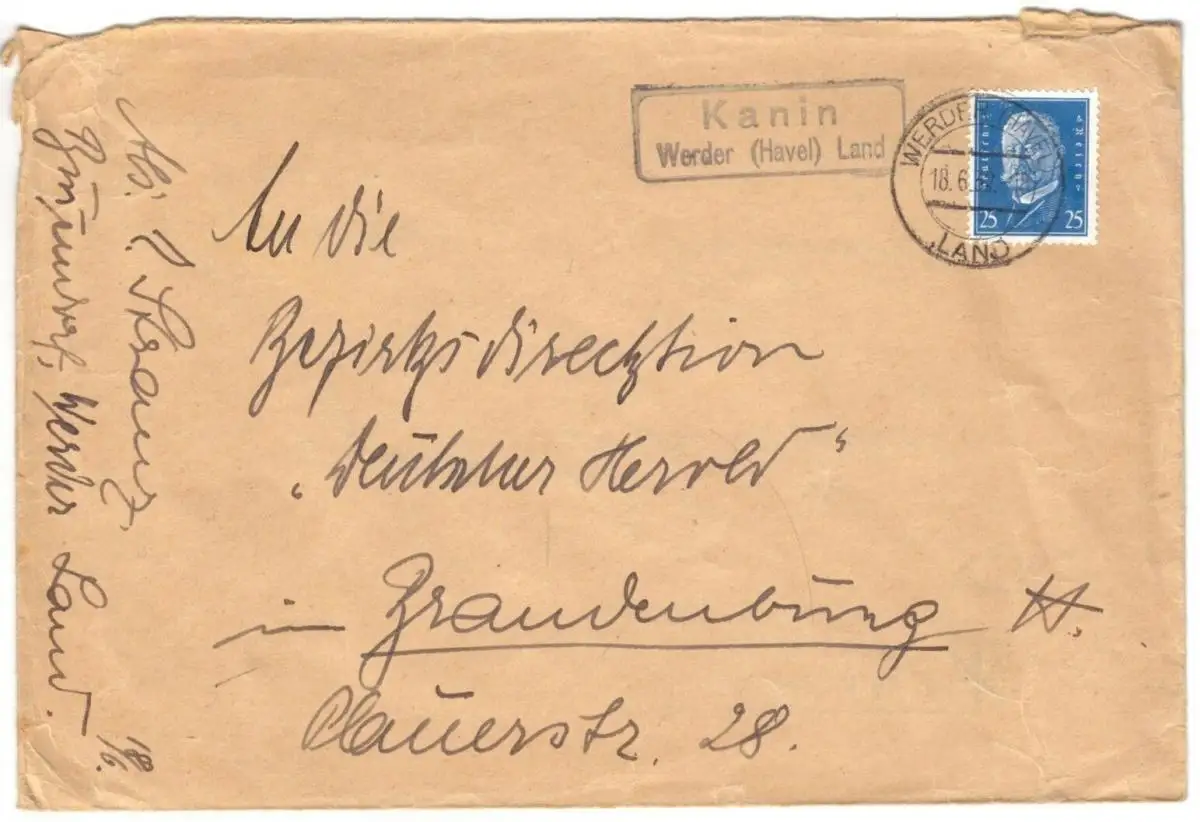 Kanin
Werder (Havel) Land
WERDER (HAVEL)
18.6.
LAND
Deutsches Reich
25 25
An die
Bezirksdirecktion
„Deutscher Herold“
in Brandenburg H.
Plauerstr. 28.
Abs: P. Kranz,
Werder Land.
18/6.